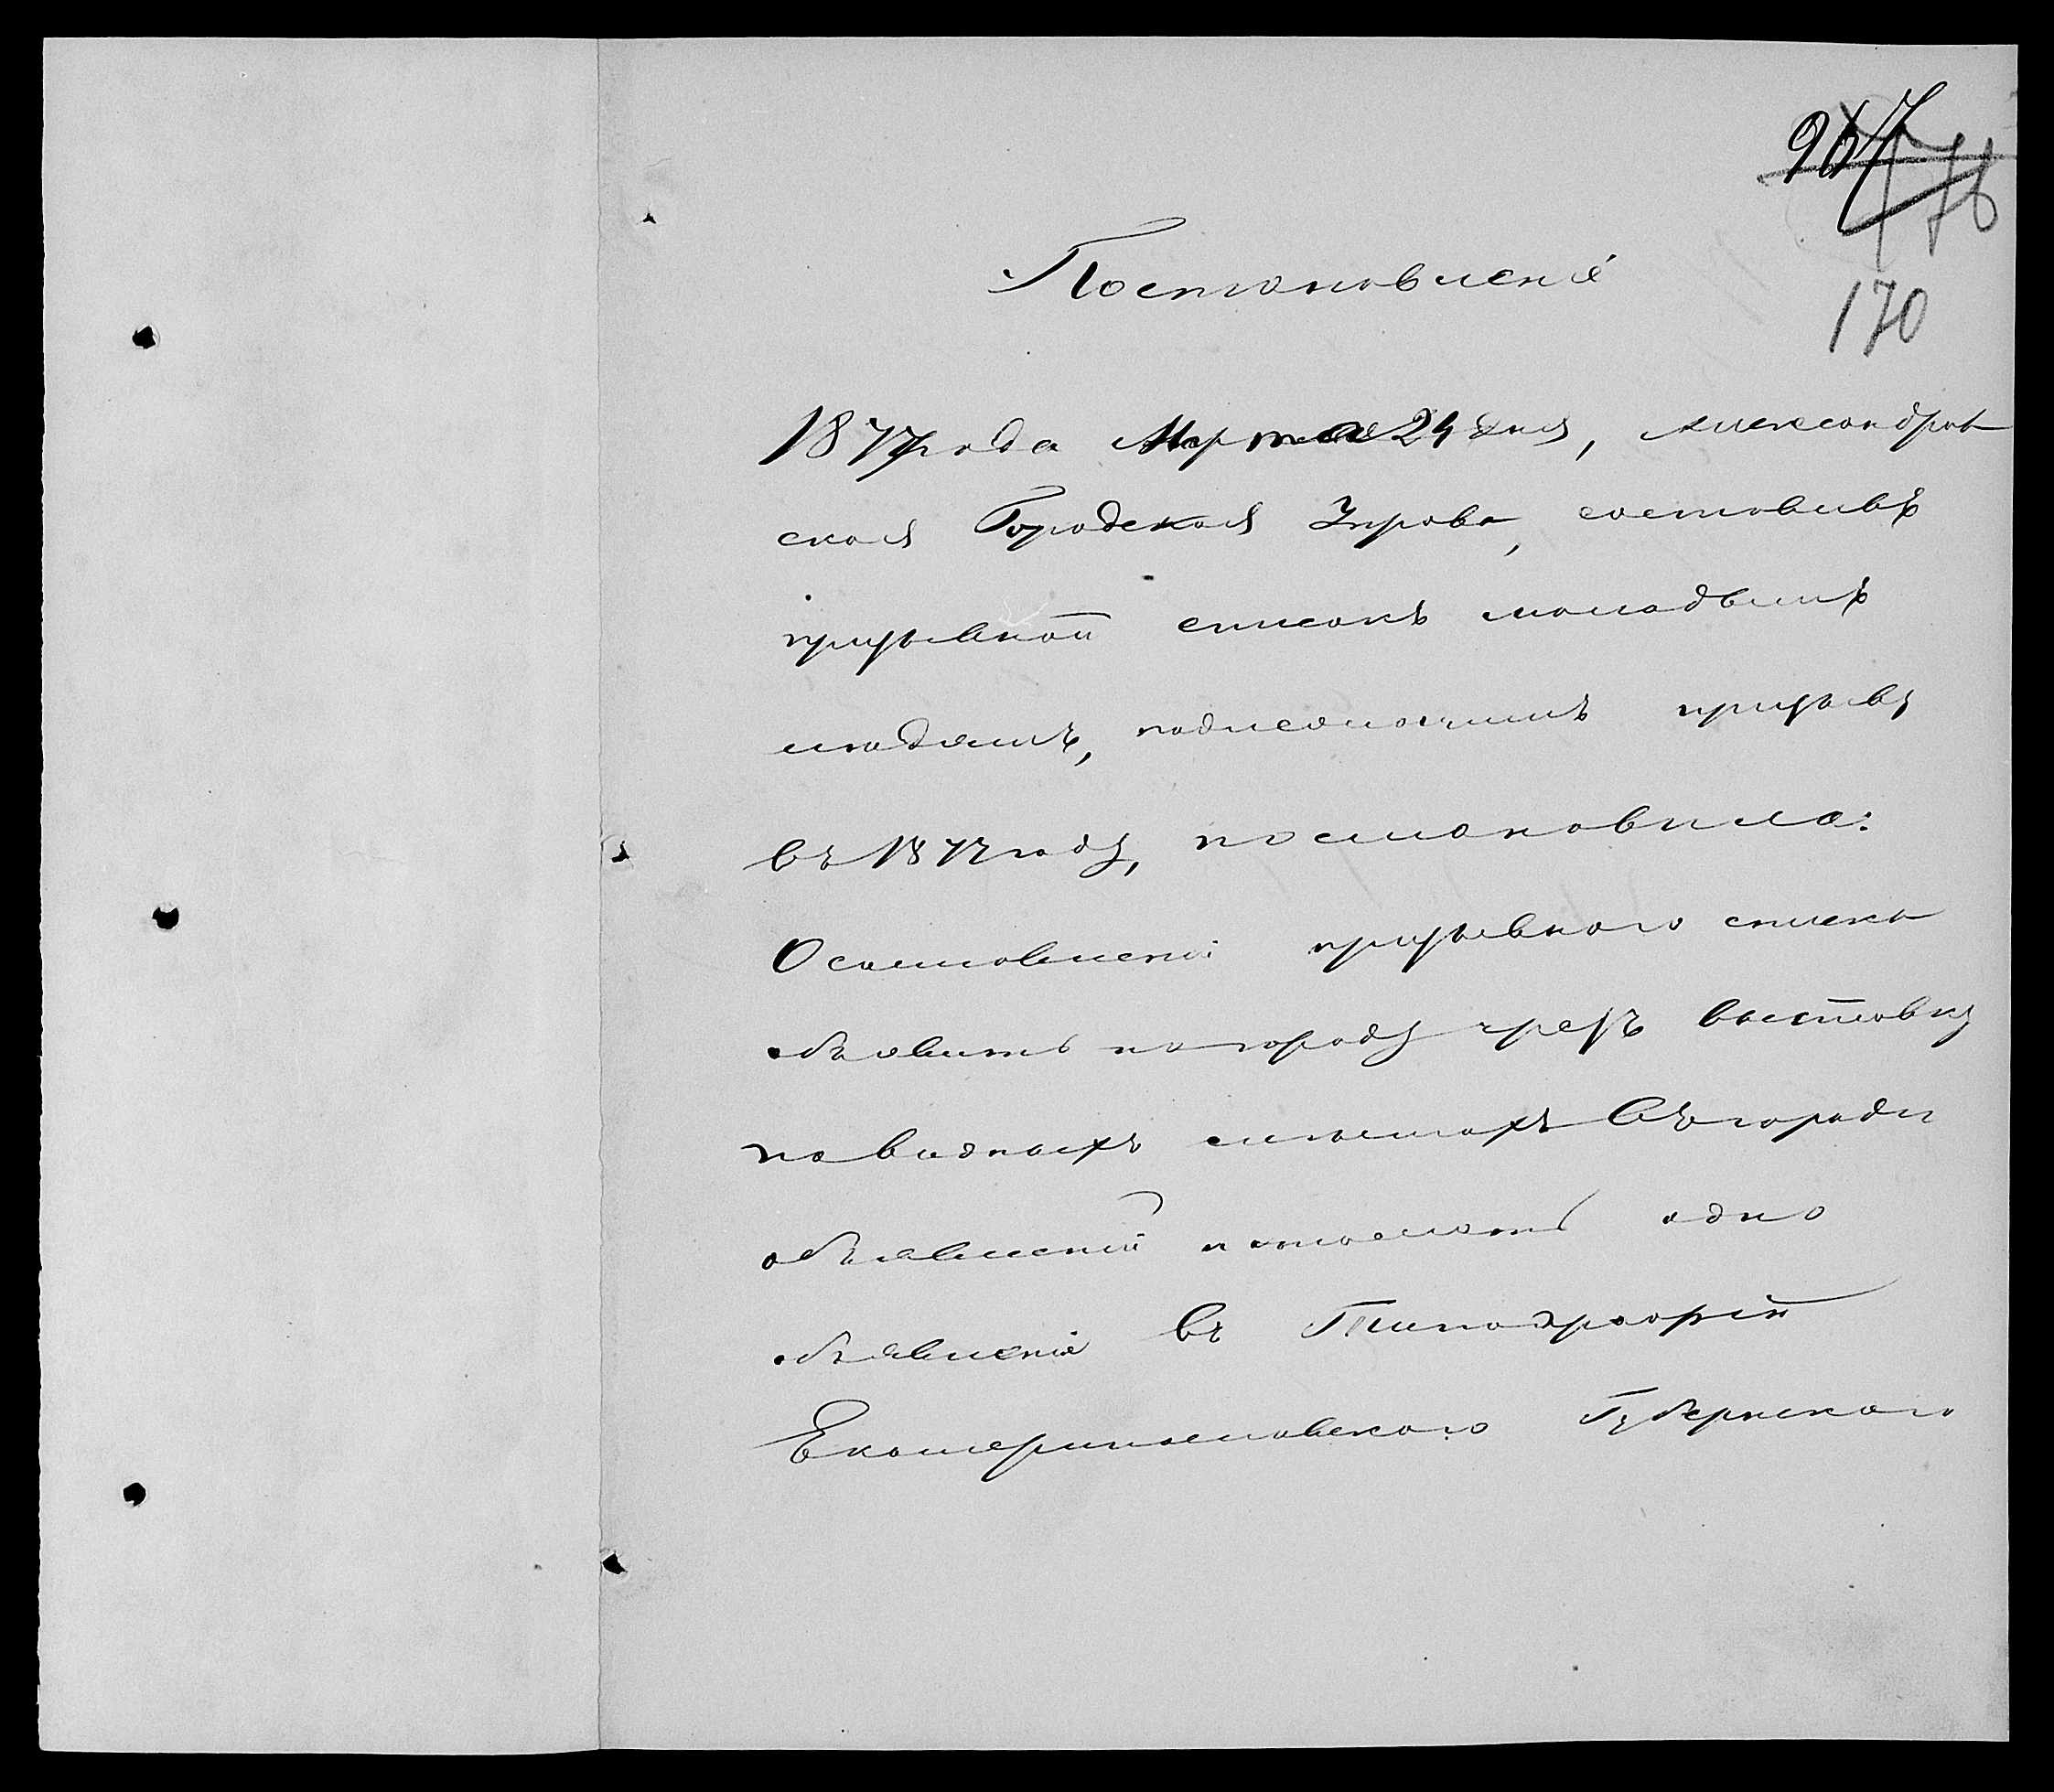 267
178
170
Постановленіе
1877 года Марта 24 дня, Александров
ская Городская Управа, составивъ
призывной списокъ молодымъ
людямъ, подлежащимъ призыву
въ 1877 году, постановила:
О составленіи призывнаго списка
объявить по городу чрезъ выставку
на видныхъ мѣстахъ въ городѣ
объявленій и послать одно
объявленіе въ Типографію
Екатеринославскаго Губернскаго